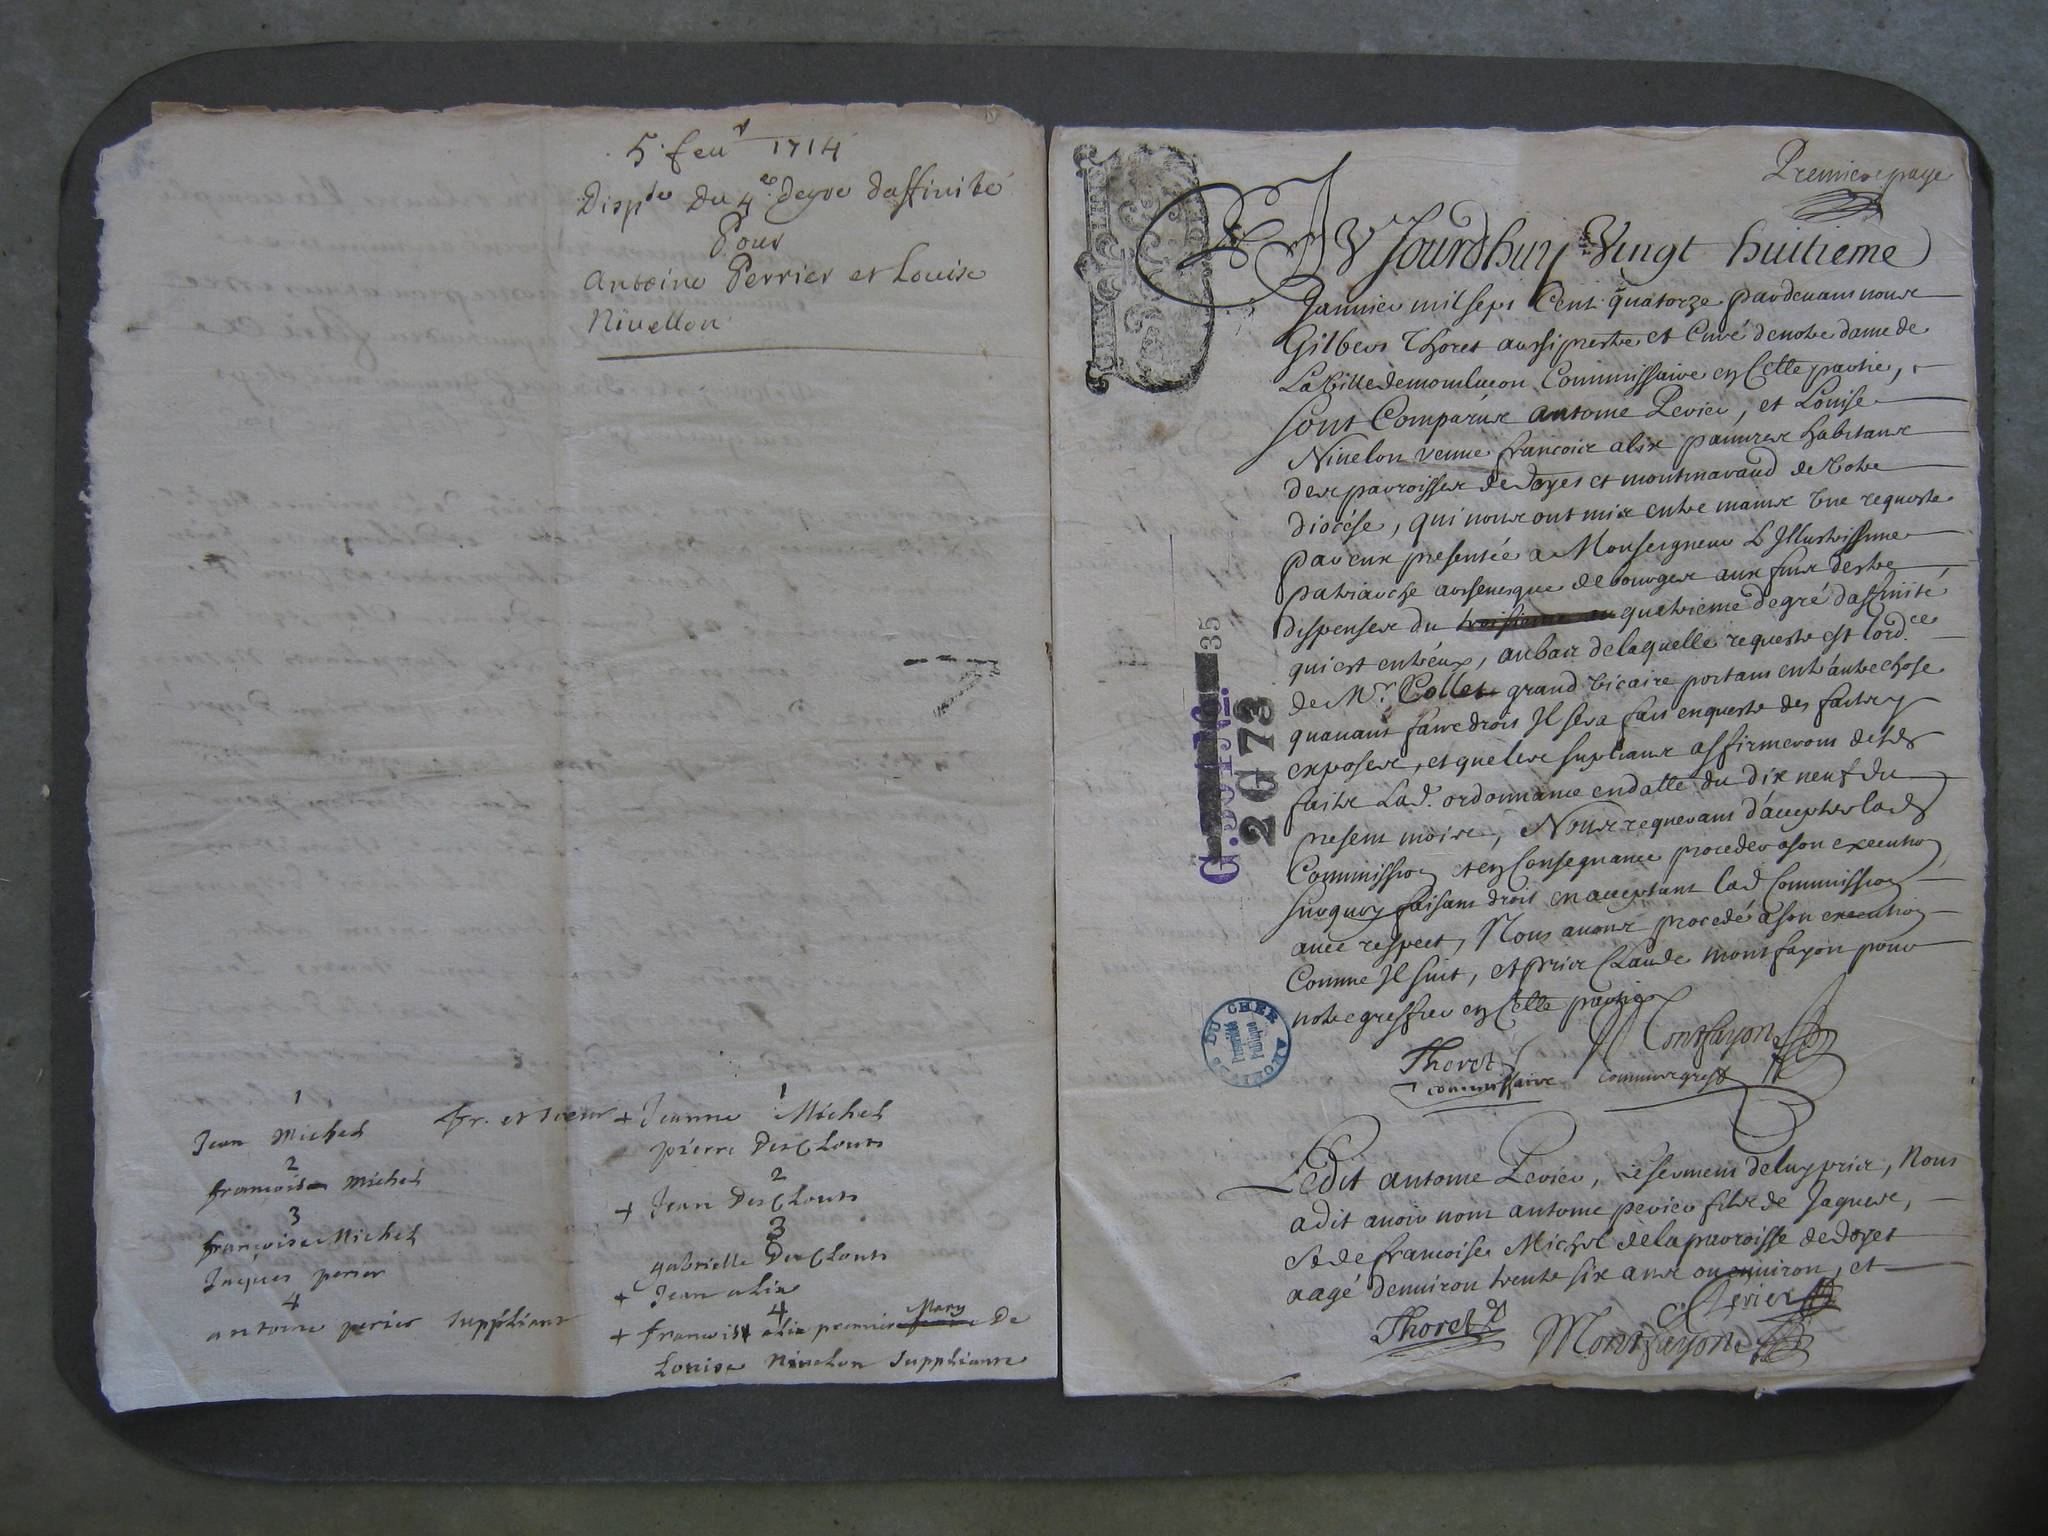 5 feur 1714
Dispse Du 4e Degre daffinité
Pour
Antoine Perrier et Louise
Nivellon
1
Jean Michel
fr. et soeur
2
francois Michel
3
françoise Michel
Jaques perier
4
antoine perier suppliant
1
+ Jeanne Michel
pierre DesClouts
2
+ Jean DesClouts
3
gabrielle DesClouts
+ Jean alix
4
+ francois alix premier Mary De
Louise Nivelon suppliante
Premiere page
AV Jourdhuy Vingt huitieme
Janvier mil sept Cent quatorze pardevant nous
Gilbert Thoret aussi prestre et Curé de notre dame de
La Ville de momlucon Commissaire en Cette partie,
sont Comparus antoine Perier, et Louise
Nivelon veuve francois alix pauvres habitans
des parroisses de doyet et montmaraud de Votre
diocése, qui nous ont mis entre mains Une requeste
par eux presentée a Monseigneur L'Illustrissime
patriarche archevesque de bourges aux fins destre
dispenses du troisieme au quatrieme degré daffinité
qui est entr'eux, au bas de laquelle requeste est lordce
de Mr. Collet grand Vicaire portant entr'autre chose
quavant faire droit Il sera fait enqueste des faits y
exposés, et que les suplians affirmeront desd
faits Lad. ordonnance en datte du dix neuf du
present mois, Nous requerant d'accepter lad
Commission et en Consequance proceder a son execution
surquoy faisant droit en acceptant lad Commission
avec respect, Nous avons procedé a son execution
Comme Il suit, et pris Claude montfayon pour
notre greffier en Cette partie
Thoret
Montfayon
commissaire
comme greff
Ledit antoine Perier, le serment de luy pris, Nous
a dit avoir nom antoine perier fils de Jaques,
et de francoise Michel de la parroisse de doyet
aagé denviron trente six ans ou environ, et
Perier
Thoret
Montfayon
35
2 G 73
ARCHIVES DU CHER